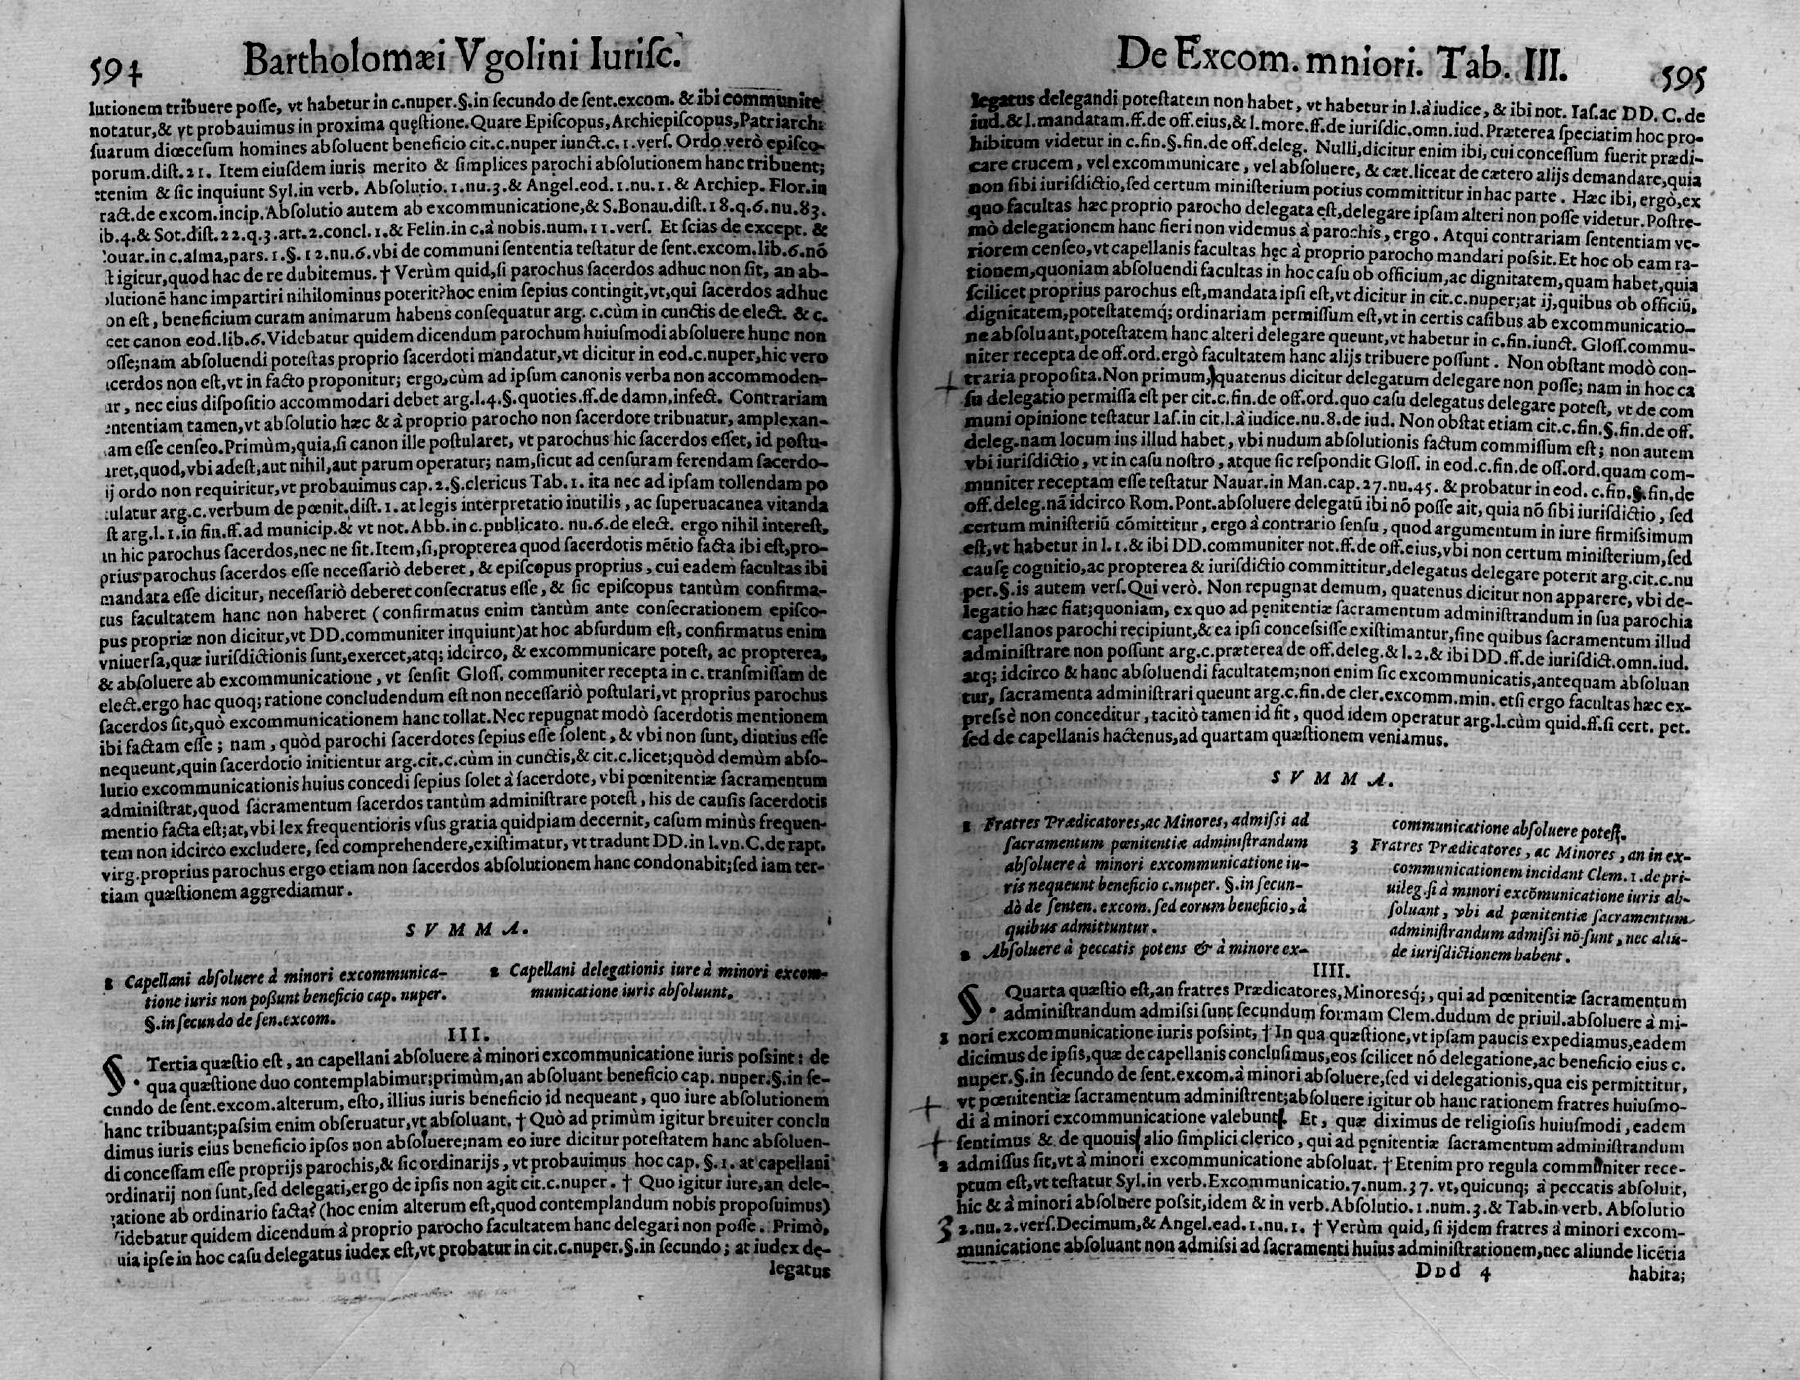 594 Bartholomæi Vgolini Iuriſc.
lutionem tribuere poſſe, vt habetur in c.nuper.§.in ſecundo de ſent.excom. & ibi communite
notatur,& vt probauimus in proxima quęſtione.Quare Epiſcopus,Archiepiſcopus,Patriarch
ſuarum diœceſum homines abſoluent beneficio cit.c.nuper iunct.c.1.verſ. Ordo verò epiſco-
porum.diſt.21. Item eiuſdem iuris merito & ſimplices parochi abſolutionem hanc tribuent;
etenim & ſic inquiunt Syl.in verb. Abſolutio.1.nu.3.& Angel.eod.1.nu.1.& Archiep. Flor.in
ract.de excom.incip.Abſolutio autem ab excommunicatione,& S.Bonau.diſt.18.q.6.nu.83.
ib.4.& Sot.diſt.22.q.3.art.2.concl.1.& Felin.in c.à nobis.num.11.verſ. Et ſcias de except. &
ouar.in c.alma,pars.1.§.12.nu.6.vbi de communi ſententia teſtatur de ſent.excom.lib.6.nō
t igitur,quod hac de re dubitemus.† Verùm quid,ſi parochus ſacerdos adhuc non ſit, an ab-
olutionē hanc impartiri nihilominus poterit?hoc enim ſepius contingit,vt,qui ſacerdos adhuc
on eſt, beneficium curam animarum habens conſequatur arg. c.cùm in cunctis de elect. & c.
cet canon eod.lib.6.Videbatur quidem dicendum parochum huiuſmodi abſoluere hunc non
oſſe;nam abſoluendi poteſtas proprio ſacerdoti mandatur,vt dicitur in eod.c.nuper,hic vero
acerdos non eſt,vt in facto proponitur; ergo,cùm ad ipſum canonis verba non accommoden-
ar, nec eius diſpoſitio accommodari debet arg.l.4.§.quoties.ff.de damn.infect. Contrariam
ententiam tamen,vt abſolutio hæc & à proprio parocho non ſacerdote tribuatur, amplexan-
am eſſe cenſeo.Primùm,quia,ſi canon ille poſtularet, vt parochus hic ſacerdos eſſet, id poſtu-
aret,quod,vbi adeſt,aut nihil,aut parum operatur; nam,ſicut ad cenſuram ferendam ſacerdo-
ij ordo non requiritur,vt probauimus cap.2.§.clericus Tab.1. ita nec ad ipſam tollendam po
tulatur arg.c.verbum de pœnit.diſt.1.at legis interpretatio inutilis, ac ſuperuacanea vitanda
ſt arg.l.1.in fin.ff.ad municip.& vt not. Abb.in c.publicato. nu.6.de elect. ergo nihil intereſt,
in hic parochus ſacerdos,nec ne ſit.Item,ſi,propterea quod ſacerdotis mētio facta ibi eſt,pro-
prius parochus ſacerdos eſſe neceſſariò deberet, & epiſcopus proprius, cui eadem facultas ibi
mandata eſſe dicitur, neceſſariò deberet conſecratus eſſe, & ſic epiſcopus tantùm confirma-
tus facultatem hanc non haberet (confirmatus enim tantùm ante conſecrationem epiſco-
pus propriæ non dicitur,vt DD.communiter inquiunt)at hoc abſurdum eſt, confirmatus enim
vniuerſa,quæ iuriſdictionis ſunt,exercet,atq; idcirco, & excommunicare poteſt, ac propterea,
& abſoluere ab excommunicatione, vt ſenſit Gloſſ. communiter recepta in c. tranſmiſſam de
elect.ergo hac quoq; ratione concludendum eſt non neceſſariò poſtulari,vt proprius parochus
ſacerdos ſit,quò excommunicationem hanc tollat.Nec repugnat modò ſacerdotis mentionem
ibi factam eſſe; nam, quòd parochi ſacerdotes ſepius eſſe ſolent, & vbi non ſunt, diutius eſſe
nequeunt,quin ſacerdotio initientur arg.cit.c.cùm in cunctis,& cit.c.licet;quòd demùm abſo-
lutio excommunicationis huius concedi ſepius ſolet à ſacerdote, vbi pœnitentiæ ſacramentum
adminiſtrat,quod ſacramentum ſacerdos tantùm adminiſtrare poteſt, his de cauſis ſacerdotis
mentio facta eſt;at,vbi lex frequentioris vſus gratia quidpiam decernit, caſum minùs frequen-
tem non idcirco excludere, ſed comprehendere,exiſtimatur, vt tradunt DD.in l.vn.C.de rapt.
virg.proprius parochus ergo etiam non ſacerdos abſolutionem hanc condonabit;ſed iam ter-
tiam quæſtionem aggrediamur.
S V M M A.
1 Capellani abſoluere à minori excommunica-
tione iuris non poßunt beneficio cap. nuper.
§.in ſecundo de ſen.excom.
2 Capellani delegationis iure à minori excom-
municatione iuris abſoluunt.
III.
§. Tertia quæſtio eſt, an capellani abſoluere à minori excommunicatione iuris poſſint: de
qua quæſtione duo contemplabimur;primùm,an abſoluant beneficio cap. nuper.§.in ſe-
cundo de ſent.excom.alterum, eſto, illius iuris beneficio id nequeant, quo iure abſolutionem
hanc tribuant;paſſim enim obſeruatur,vt abſoluant. † Quò ad primùm igitur breuiter conclu
dimus iuris eius beneficio ipſos non abſoluere;nam eo iure dicitur poteſtatem hanc abſoluen-
di conceſſam eſſe proprijs parochis,& ſic ordinarijs, vt probauimus hoc cap. §.1. at capellani
ordinarij non ſunt,ſed delegati,ergo de ipſis non agit cit.c.nuper. † Quo igitur iure,an dele-
gatione ab ordinario facta? (hoc enim alterum eſt,quod contemplandum nobis propoſuimus)
idebatur quidem dicendum à proprio parocho facultatem hanc delegari non poſſe. Primò,
uia ipſe in hoc caſu delegatus iudex eſt,vt probatur in cit.c.nuper.§.in ſecundo; at iudex de-
legatus
De Excom. mniori. Tab. III. 595
legatus delegandi poteſtatem non habet, vt habetur in l.à iudice, & ibi not. Iaſ.ac DD. C. de
iud.& l.mandatam.ff.de off.eius,& l.more.ff.de iuriſdic.omn.iud. Præterea ſpeciatim hoc pro-
hibitum videtur in c.fin.§.fin.de off.deleg. Nulli,dicitur enim ibi, cui conceſſum fuerit prædi-
care crucem, vel excommunicare, vel abſoluere, & cæt.liceat de cætero alijs demandare,quia
non ſibi iuriſdictio,ſed certum miniſterium potius committitur in hac parte. Hæc ibi, ergò,ex
quo facultas hæc proprio parocho delegata eſt,delegare ipſam alteri non poſſe videtur. Poſtre-
mò delegationem hanc fieri non videmus à parochis, ergo. Atqui contrariam ſententiam ve-
riorem cenſeo,vt capellanis facultas hęc à proprio parocho mandari poſſit. Et hoc ob eam ra-
tionem,quoniam abſoluendi facultas in hoc caſu ob officium,ac dignitatem,quam habet,quia
ſcilicet proprius parochus eſt,mandata ipſi eſt,vt dicitur in cit.c.nuper;at ij,quibus ob officiū,
dignitatem,poteſtatemq; ordinariam permiſſum eſt,vt in certis caſibus ab excommunicatio-
ne abſoluant,poteſtatem hanc alteri delegare queunt,vt habetur in c.fin.iunct. Gloſſ.commu-
niter recepta de off.ord.ergò facultatem hanc alijs tribuere poſſunt. Non obſtant modò con-
traria propoſita.Non primum, quatenus dicitur delegatum delegare non poſſe; nam in hoc ca
ſu delegatio permiſſa eſt per cit.c.fin.de off.ord.quo caſu delegatus delegare poteſt, vt de com
muni opinione teſtatur Iaſ.in cit.l.à iudice.nu.8.de iud. Non obſtat etiam cit.c.fin.§.fin.de off.
deleg.nam locum ius illud habet, vbi nudum abſolutionis factum commiſſum eſt; non autem
vbi iuriſdictio, vt in caſu noſtro, atque ſic reſpondit Gloſſ. in eod.c.fin.de off.ord.quam com-
muniter receptam eſſe teſtatur Nauar.in Man.cap.27.nu.45. & probatur in eod. c.fin.§.fin.de
off.deleg.nā idcirco Rom. Pont.abſoluere delegatū ibi nō poſſe ait, quia nō ſibi iuriſdictio, ſed
certum miniſteriū cōmittitur, ergo à contrario ſenſu, quod argumentum in iure firmiſſimum
eſt,vt habetur in l.1.& ibi DD.communiter not.ff.de off.eius,vbi non certum miniſterium,ſed
cauſę cognitio,ac propterea & iuriſdictio committitur,delegatus delegare poterit arg.cit.c.nu
per.§.is autem verſ.Qui verò. Non repugnat demum, quatenus dicitur non apparere, vbi de-
legatio hæc fiat;quoniam, ex quo ad pęnitentiæ ſacramentum adminiſtrandum in ſua parochia
capellanos parochi recipiunt,& ea ipſi conceſſiſſe exiſtimantur,ſine quibus ſacramentum illud
adminiſtrare non poſſunt arg.c.præterea de off.deleg.& l.2.& ibi DD.ff.de iuriſdict.omn.iud.
atq; idcirco & hanc abſoluendi facultatem;non enim ſic excommunicatis,antequam abſoluan
tur, ſacramenta adminiſtrari queunt arg.c.fin.de cler.excomm.min. etſi ergo facultas hæc ex-
preſsè non conceditur, tacitò tamen id fit, quod idem operatur arg.l.cùm quid.ff.ſi cert. pet.
ſed de capellanis hactenus,ad quartam quæſtionem veniamus.
S V M M A.
1 Fratres Prædicatores,ac Minores, admiſſi ad
ſacramentum pœnitentiæ adminiſtrandum
abſoluere à minori excommunicatione iu-
ris nequeunt beneficio c.nuper. §.in ſecun-
dò de ſenten. excom. ſed eorum beneficio, à
quibus admittuntur.
2 Abſoluere à peccatis potens & à minore ex-
communicatione abſoluere poteſt.
3 Fratres Prædicatores, ac Minores, an in ex-
communicationem incidant Clem.1.de pri-
uileg.ſi à minori excōmunicatione iuris ab-
ſoluant, vbi ad pœnitentiæ ſacramentum
adminiſtrandum admiſſi nō ſunt, nec aliū-
de iuriſdictionem habent.
IIII.
§. Quarta quæſtio eſt,an fratres Prædicatores,Minoresq́;, qui ad pœnitentiæ ſacramentum
adminiſtrandum admiſſi ſunt ſecundum formam Clem.dudum de priuil.abſoluere à mi-
1 nori excommunicatione iuris poſſint, † In qua quæſtione,vt ipſam paucis expediamus,eadem
dicimus de ipſis,quæ de capellanis concluſimus,eos ſcilicet nō delegatione,ac beneficio eius c.
nuper.§.in ſecundo de ſent.excom.à minori abſoluere,ſed vi delegationis,qua eis permittitur,
vt pœnitentiæ ſacramentum adminiſtrent;abſoluere igitur ob hanc rationem fratres huiuſmo-
di à minori excommunicatione valebunt. Et, quæ diximus de religioſis huiuſmodi, eadem
ſentimus & de quouis alio ſimplici clerico, qui ad pęnitentiæ ſacramentum adminiſtrandum
2 admiſſus ſit,vt à minori excommunicatione abſoluat. † Etenim pro regula communiter rece-
ptum eſt,vt teſtatur Syl.in verb.Excommunicatio.7.num.37. vt, quicunq; à peccatis abſoluit,
hic & à minori abſoluere poſſit,idem & in verb. Abſolutio.1.num.3.& Tab.in verb. Abſolutio
3 2.nu.2.verſ.Decimum,& Angel.ead.1.nu.1. † Verùm quid, ſi ijdem fratres à minori excom-
municatione abſoluant non admiſſi ad ſacramenti huius adminiſtrationem,nec aliunde licētia
Ddd 4 habita;